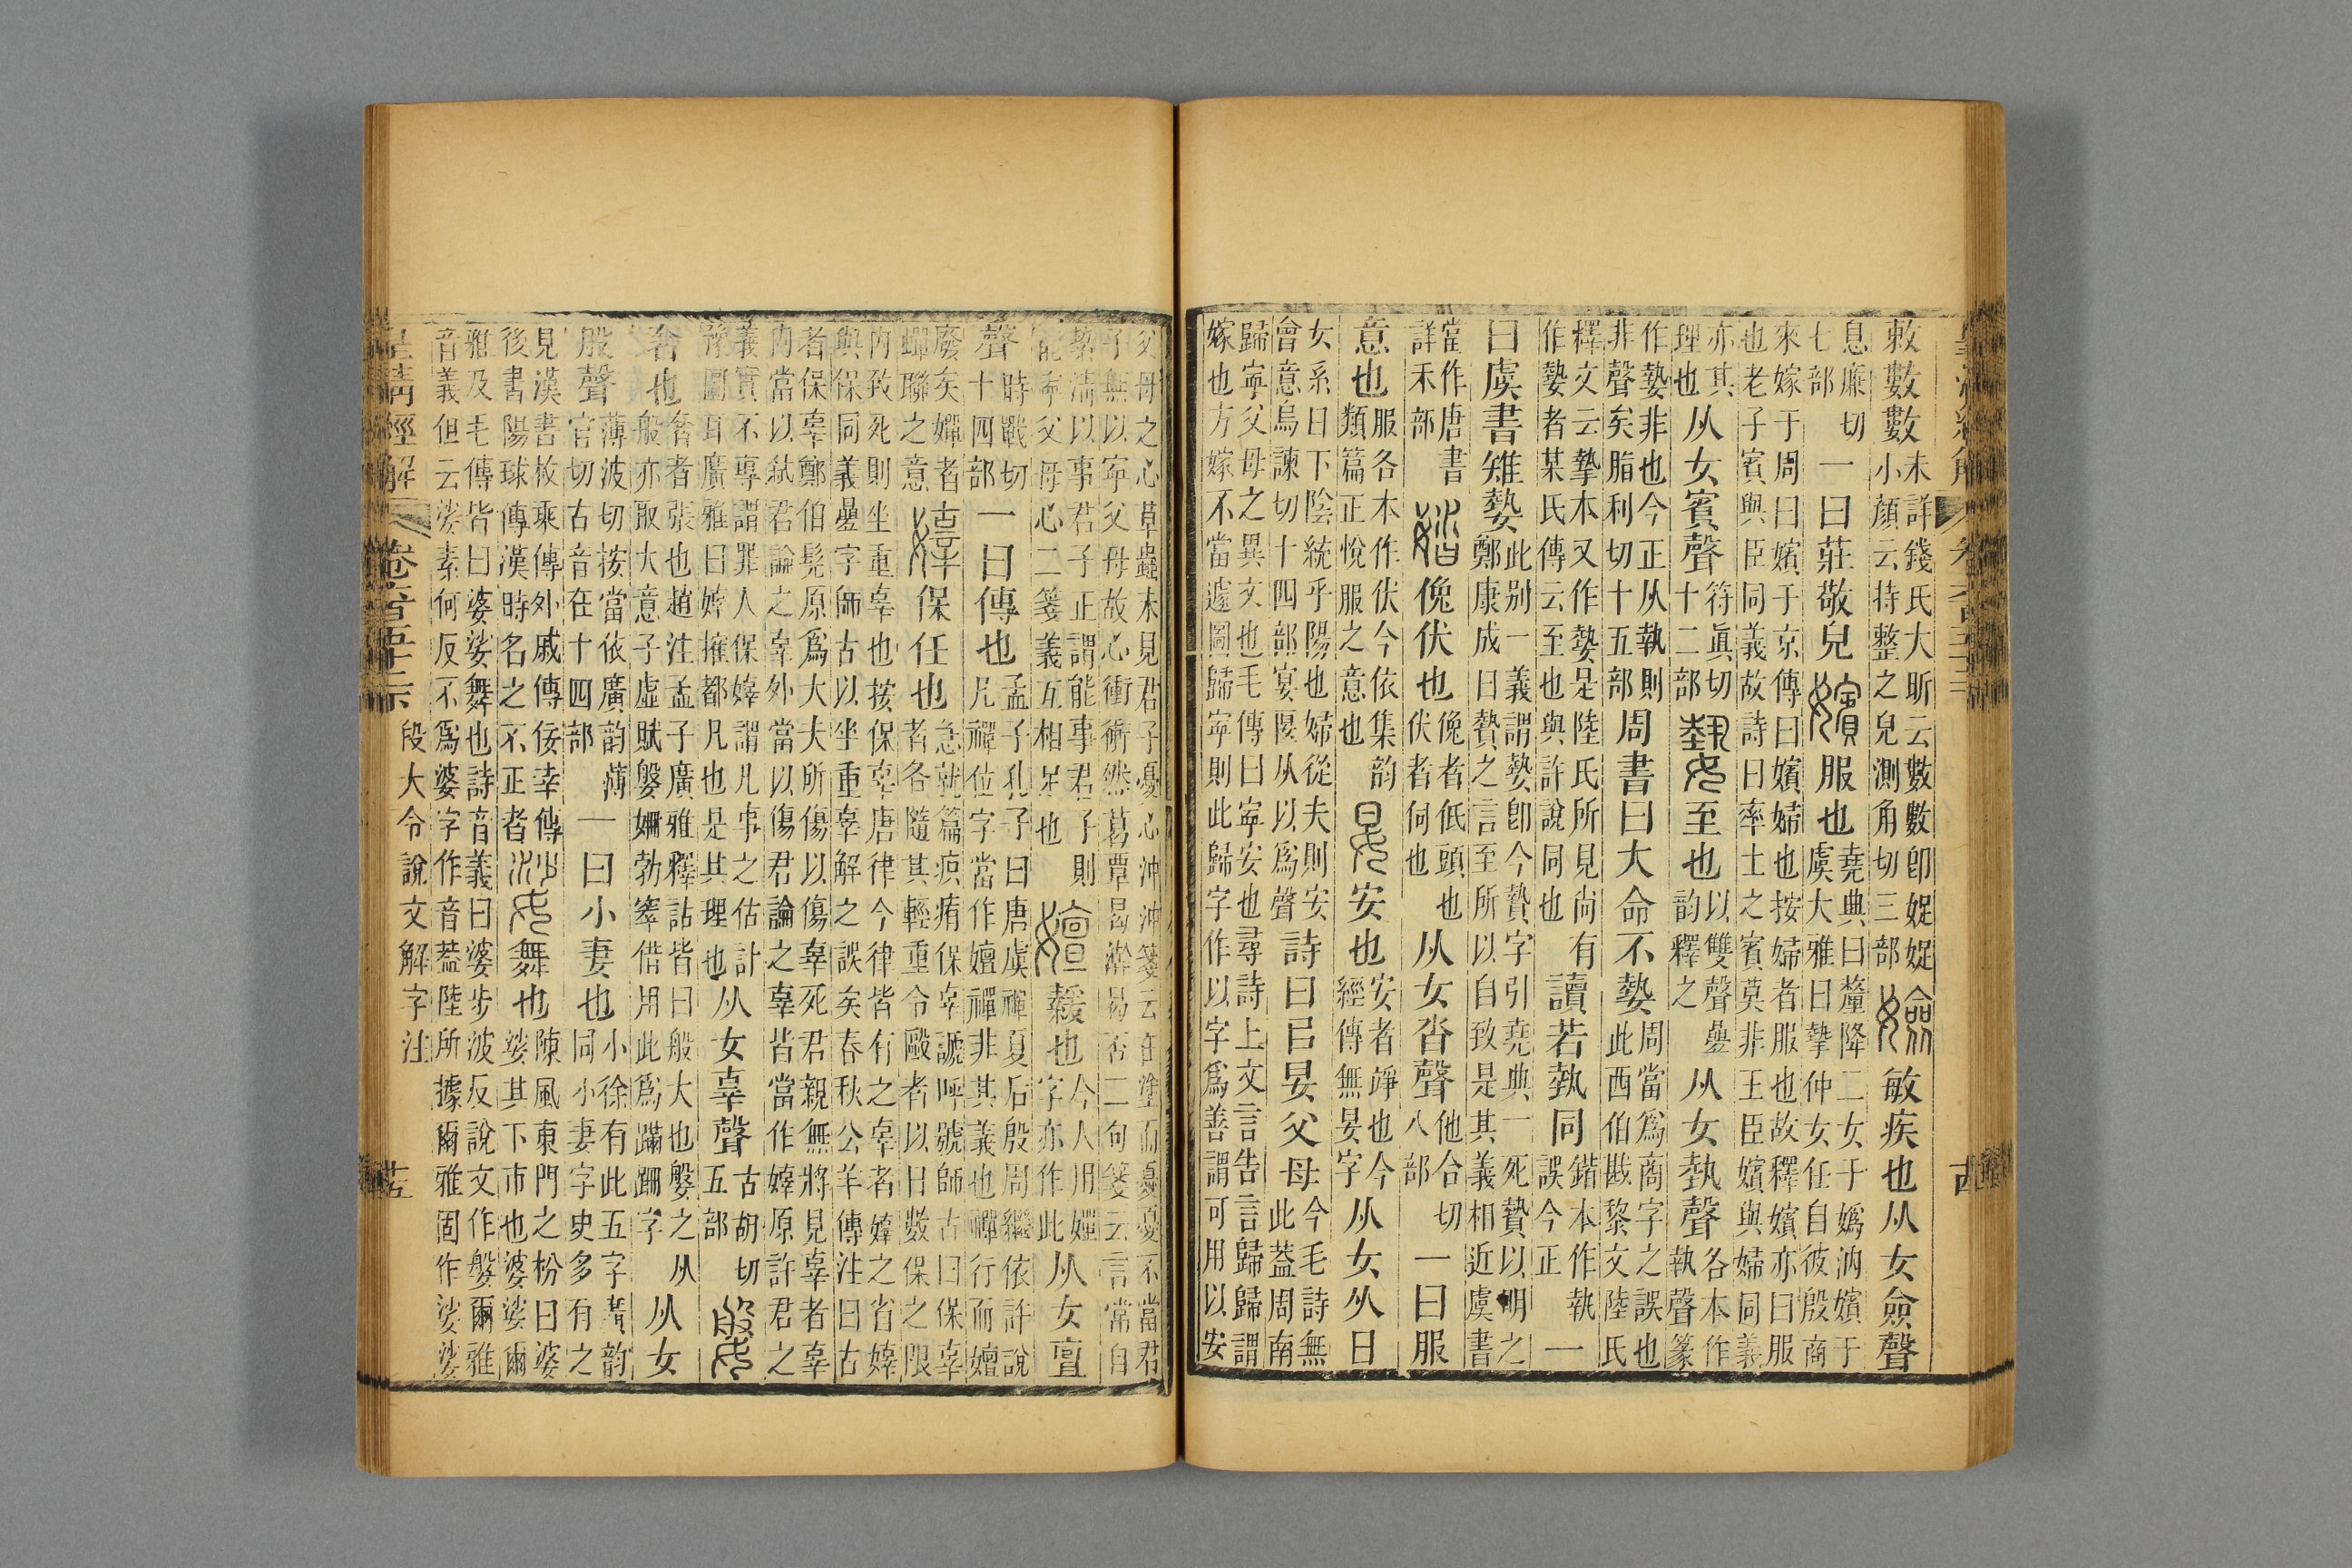 敕數數未詳錢氏大昕云數數卽娖娖
小顏云持整之皃測角切三部㜝敏疾也从女僉聲
息廉切
七部一曰莊敬皃嬪服也堯典曰釐降二女于嬀汭嬪于
虞大雅曰摯仲女任自彼殷商
來嫁于周曰嬪于京傳曰嬪婦也按婦者服也故釋嬪亦曰服
也老子賓與臣同義故詩曰率土之賓莫非王臣嬪與婦同義
亦其
理也从女賓聲符眞切
十二部㜼至也以雙聲㬪
韵釋之从女執聲各本作
執聲篆
作㜼非也今正从執則
非聲矣脂利切十五部周書曰大命不㜼周當爲商字之誤也
此西伯戡黎文陸氏
釋文云摯本又作㜼是陸氏所見尚有
作㜼者某氏傳云至也與許說同也讀若執同鍇本作執
誤今正一
曰虞書雉㜼此别一義謂㜼卽今贄字引堯典一死贄以明之
鄭康成曰贄之言至所以自致是其義相近虞書
當作唐書
詳禾部㛥俛伏也俛者低頭也
伏者伺也从女沓聲他合切
八部一曰服
意也服各本作伏今依集韵
類篇正悅服之意也晏安也安者竫也今
經傳無晏字从女从日
女系日下陰統乎陽也婦從夫則安
會意烏諫切十四部宴匽从以爲聲詩曰㠯晏父母今毛詩無
此蓋周南
歸寧父母之異文也毛傳曰寧安也尋詩上文言告言歸歸謂
嫁也方嫁不當遽圖歸寧則此歸字作以字爲善謂可用以安
父母之心草蟲未見君子憂心沖沖箋云在塗而憂憂不當君
子無以寧父母故心衝衝然葛覃曷澣曷否二句箋云言常自
絜淸以事君子正謂能事君子則
能寧父母心二箋義互相足也嬗緩也今人用嬋
字亦作此从女亶
聲時戰切
十四部一曰傳也孟子孔子曰唐虞禪夏后殷周繼依許說
凡禪位字當作嬗禪非其義也禪行而嬗
廢矣嬋者
蟬聯之意㛃保任也急就篇疻痏保辜謕呼號師古曰保辜
者各隨其輕重令毆者以日數保之限
內致死則坐重辜也按保辜唐律今律皆有之辜者㛃之省㛃
與保同義㬪字師古以坐重辜解之誤矣春秋公羊傳注曰古
者保辜鄭伯髡原爲大夫所傷以傷辜死君親無將見辜者辜
內當以弑君論之辜外當以傷君論之辜皆當作㛃原許君之
義實不專謂罪人保㛃謂凡事之估計
豫圖耳廣雅曰㛃㩁都凡也是其理也从女辜聲古胡切
五部媻
奢也奢者張也趙注孟子廣雅釋詁皆曰般大也媻之从
般亦取大意子虛賦媻姗勃窣借用此爲蹣跚字从女
般聲薄波切按當依廣韵薄
官切古音在十四部一曰小妻也小徐有此五字黃韵
同小妻字史多有之
見漢書枚乘傳外戚傳佞幸傳
後書陽球傳漢時名之不正者娑舞也陳風東門之枌曰婆
娑其下市也婆娑爾
雅及毛傳皆曰婆娑舞也詩音義曰婆步波反說文作媻爾雅
音義但云娑素何反不爲婆字作音葢陸所據爾雅固作娑娑
皇淸經解
卷六百五十六 段大令說文解字注
十五
皇淸經解
十四